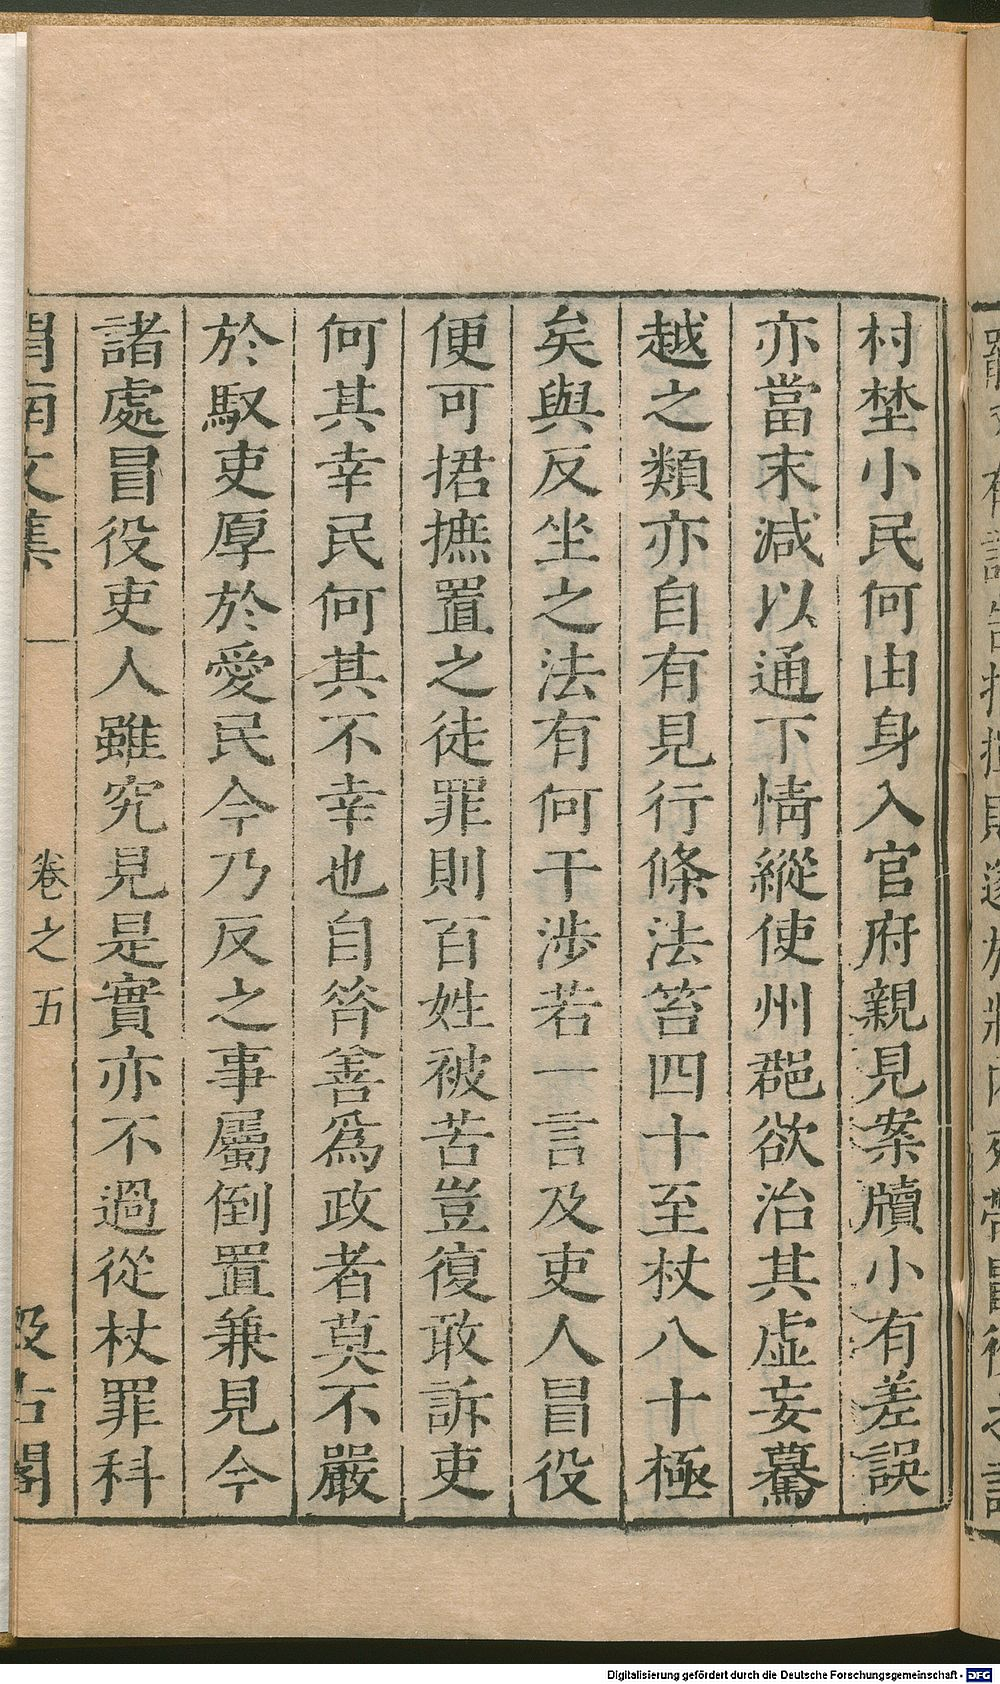 村埜小民何由身入官府親見案牘小有差誤
亦當末減以通下情縱使州郡欲治其虛妄驀
越之類亦自有見行條法笞四十至杖八十極
矣與反坐之法有何干涉若一言及吏人冒役
便可捃摭置之徒罪則百姓被苦豈復敢訴吏
何其幸民何其不幸也自昝善爲政者莫不嚴
於馭吏厚於愛民今乃反之事屬倒置兼見今
諸處冒役吏人雖究見是實亦不過從杖罪科
渭南文集 卷之五 汲古閣
Digitalisierung gefördert durch die Deutsche Forschungsgemeinschaft - DFG